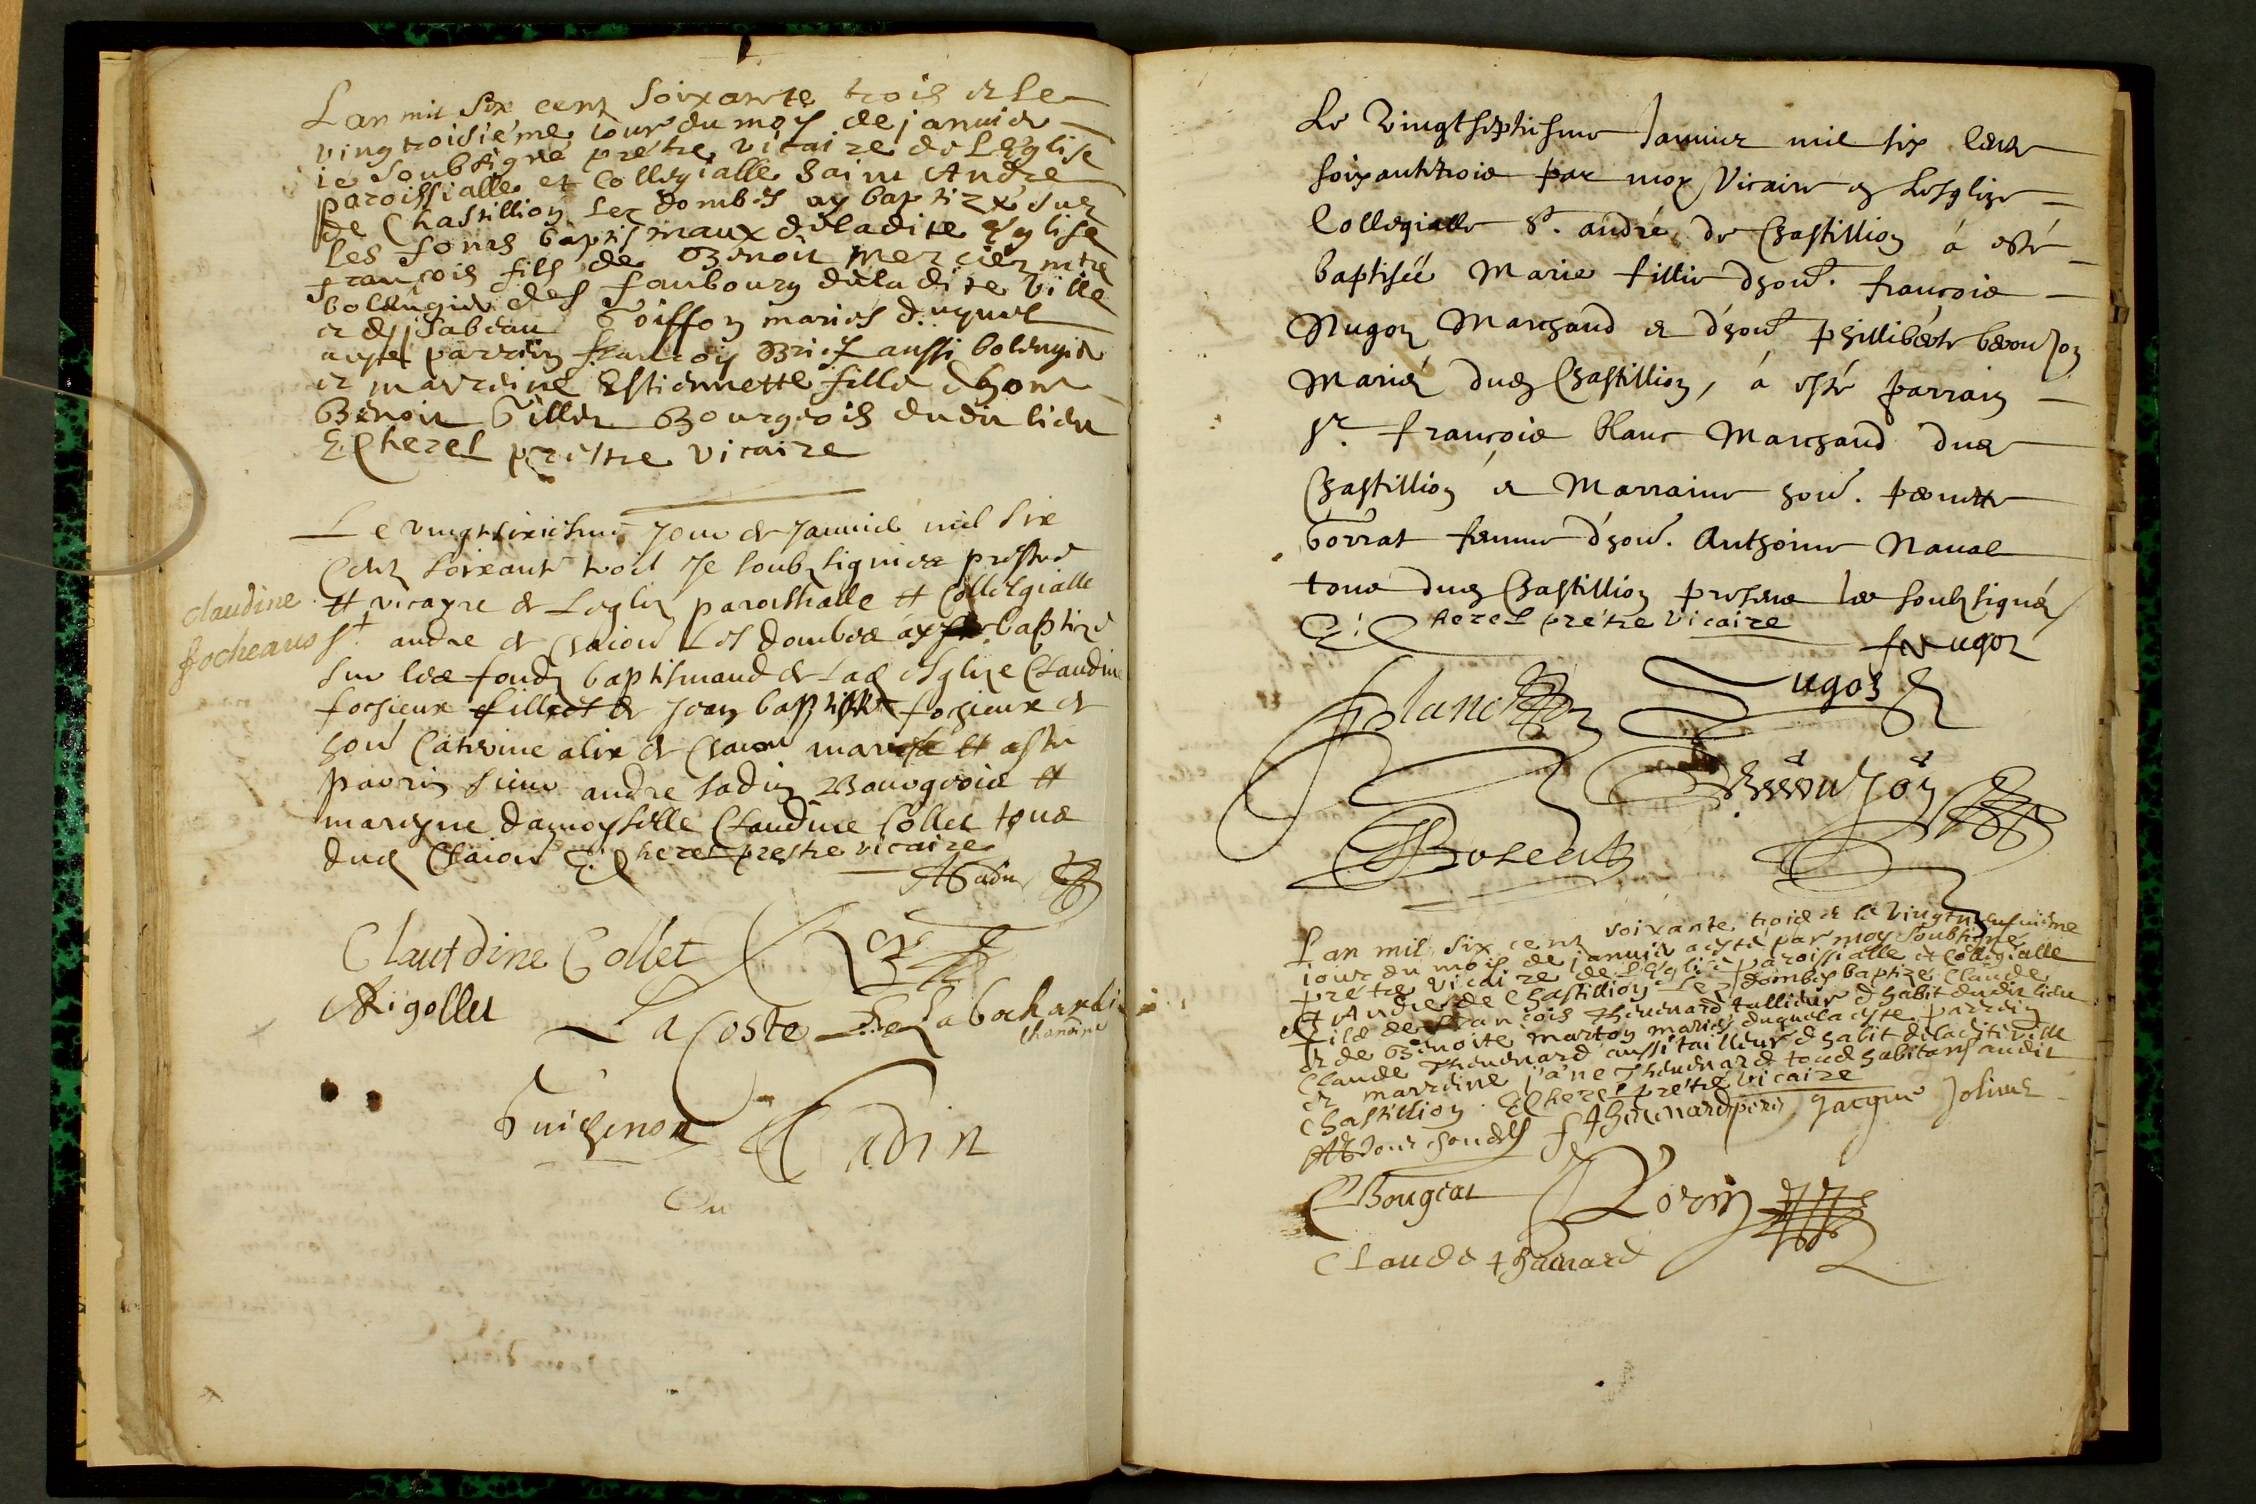 Lan mil six cent soixante trois et le
vingtroisiéme iour du moys de januier
ie soubsigné prétre vicaire de L'Eglise
paroissialle et Collegialle Saint André
de Chastillion Lez dombes ay baptizé sur
les fonts baptismaux de ladite Eglise
françois fils de Benoit Mercier mtre
bolengier des faubourg deladite Ville
et dysabeau Toiffon mariés duquel
a esté parrein françois Brief aussi bolengier
et marreine Estiennette fille dhon
Benoit Gillet Bourgeois dudit lieu
Cherel prestre vicaire
Le vingtsixiesme Jour de Januier mil six
Cent soixante trois Je soubzsigné prestre
et vicayre de Leglize paroissialle et Collesgialle
claudine focheaus
St andre de Chaion Les dombes ay baptize
sur les fondz baptismaud de lad esglize Claudine
fochieux fille de Jean baptiste fochieux et
hon Catherine alix de Chaion maries et a este
parrin sieur andre sadin Bourgeois et
mareyne damoyselle Claudine Collet tous
dud Chaion Cherel prestre vicaire
ASadin
Clautdine Collet
ARigollet
La Coste De Labochardie
chanoine
Guichenon
Sadin
Le Vingtseptiesme Januier mil six Cent
soixantetrois par moy Vicaire en Lesglize
Collegialle St. andré de Chastillion á esté
baptisée Marie fillie dhon. françois
Nugoz Marchand et d'hon phillibérte beoujon
Mariéz dud Chastillion, á esté parrain
sr. françois blanc Marchand dud
Chastillion et Marraine hon. pernette
Gorrat femme d'hon. Anthoine Naual
tous dud Chastillion presens les soubzsignéz
Cherel prétre vicaire
fNugoz
fblanc
Nugoz
Beoujon
Lan mil six cent soixante trois et le vingtneufuiéme
iour du mois de januier a esté par moy soubsigné
prétre vicaire de L'Eglise paroissialle et Collegialle
St André de Chastillion Lez dombes baptizé Claude
fils de françois Theuenard tallieur d'habit dudit lieu
et de Benoite Marton mariés duquel a esté parrein
Claude Theuenard aussi tailleur d'habit deladite ville
et marreine jane Theuenard tous habitans audit
Chastillion Cherel prétre vicaire
f Theuenard pere Jacque Joliuet
CBougeat
Lorin
Claude theuenard